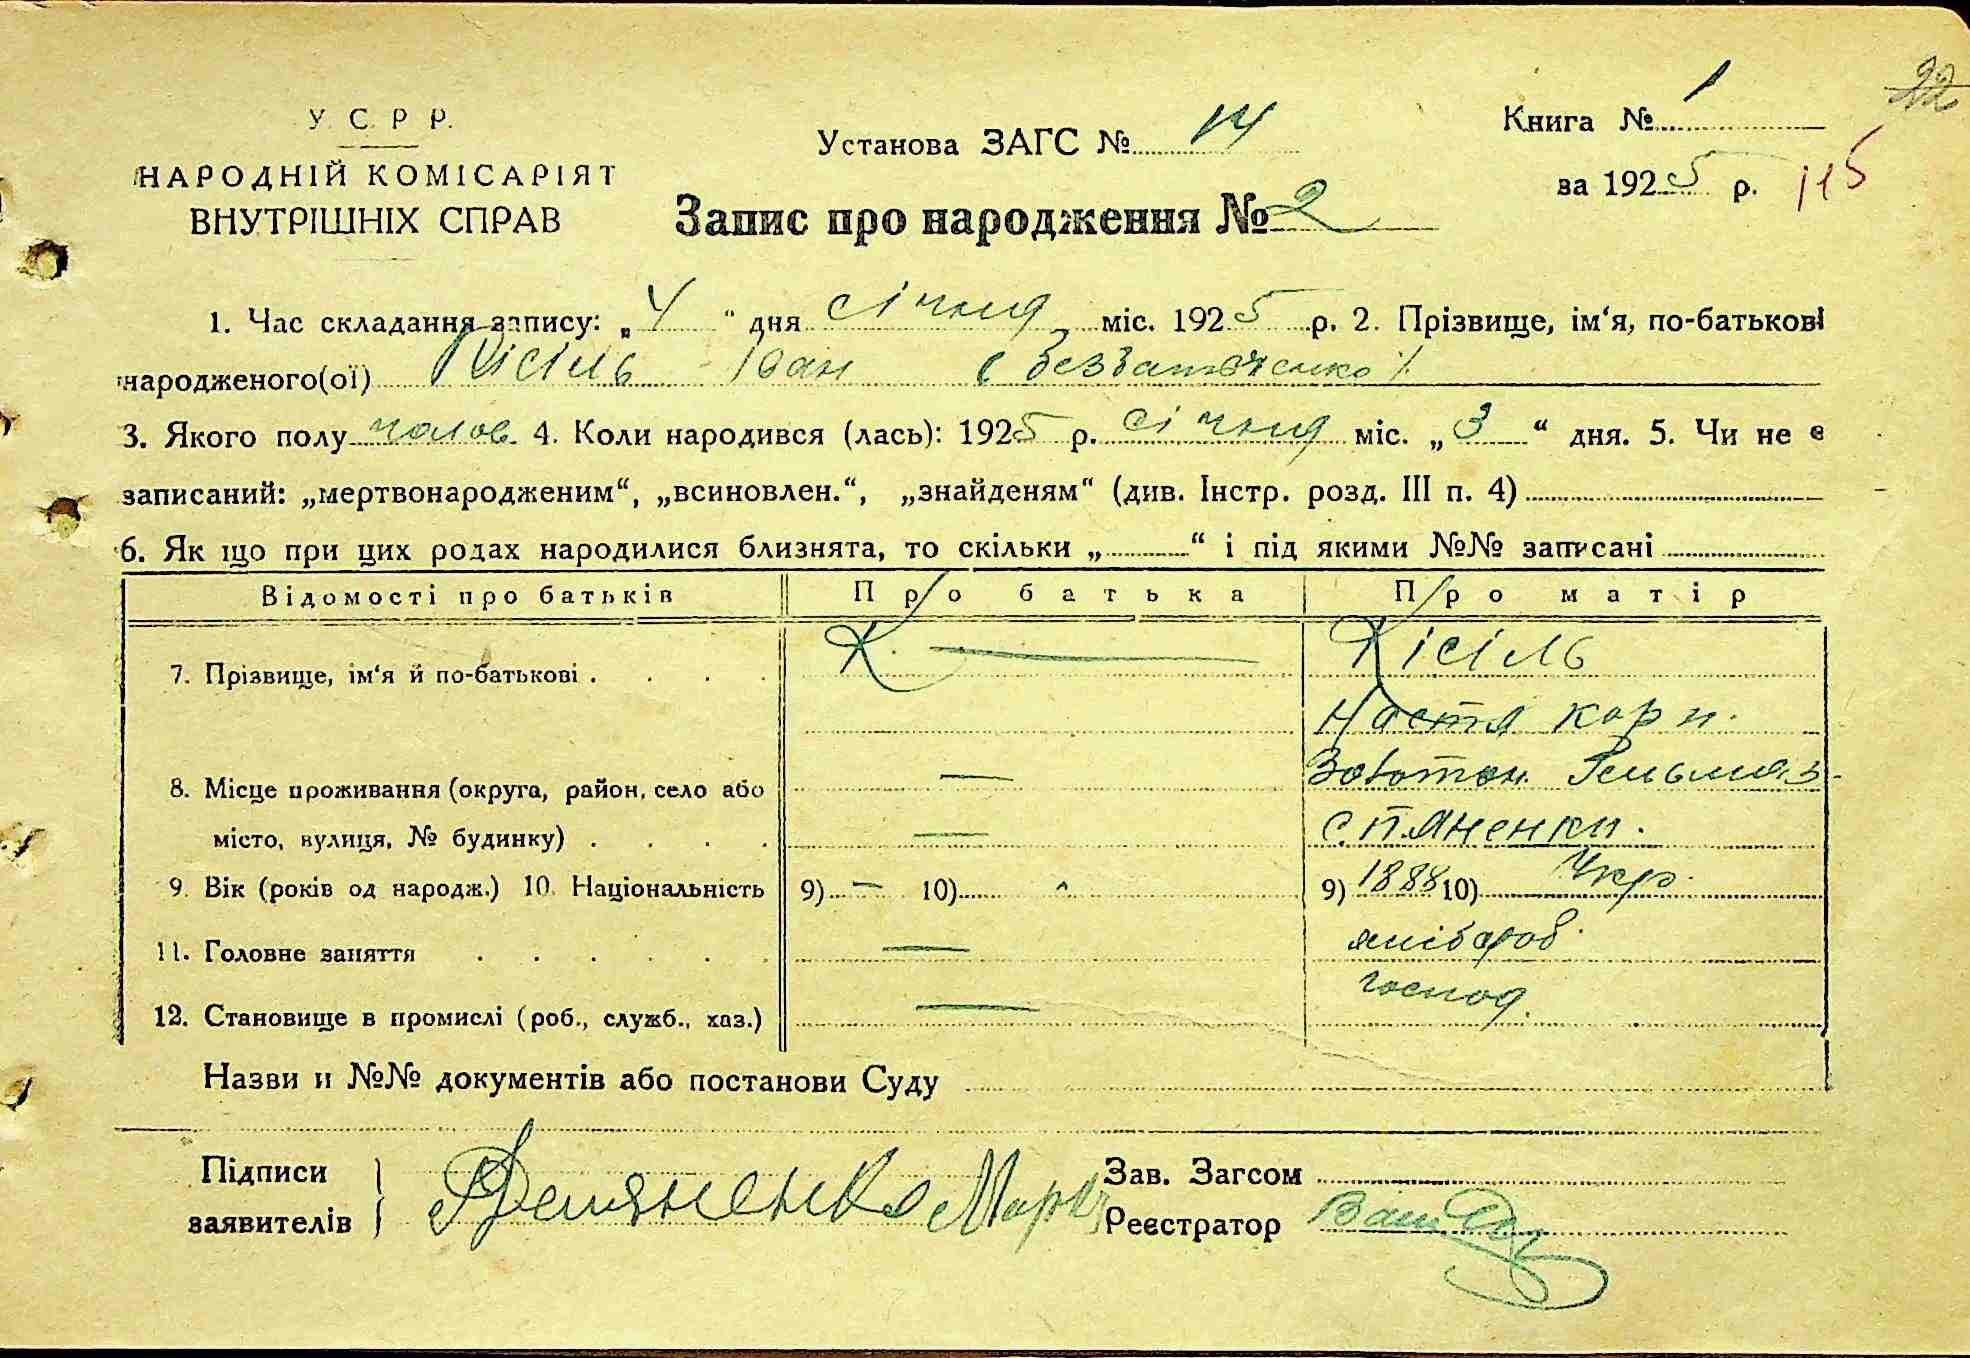 22
У. С. Р. Р.
НАРОДНІЙ КОМІСАРІЯТ
ВНУТРІШНІХ СПРАВ
Установа ЗАГС № 14
Книга № 1
за 1925 р. 115
Запис про народження № 2
1. Час складання запису: „4“ дня січня міс. 1925 р. 2. Прізвище, ім‘я, по-батькові
народженого(ої) Кісіль Іван
3. Якого полу чолов. 4. Коли народився (лась): 1925 р. січня міс. „3“ дня. 5. Чи не є
записаний: „мертвонародженим“, „всиновлен.“, „знайденям“ (див. Інстр. розд. III п. 4)
6. Як що при цих родах народилися близнята, то скільки „ “ і під якими №№ записані
Відомості про батьків Про батька Про матір
7. Прізвище, ім‘я й по-батькові . . . . К. — Кісіль
Настя Корн.
8. Місце проживання (округа, район, село або — Золотон. Гельмяз.
місто, вулиця, № будинку) . . . . — с Пяненки.
9. Вік (років од народж.) 10. Національність 9) — 10) 9) 1888 10) Укр.
11. Головне заняття . . . . . . —
12. Становище в промислі (роб., служб., хаз.) — господ.
Назви й №№ документів або постанови Суду
Підписи Зав. Загсом
заявителів Реєстратор